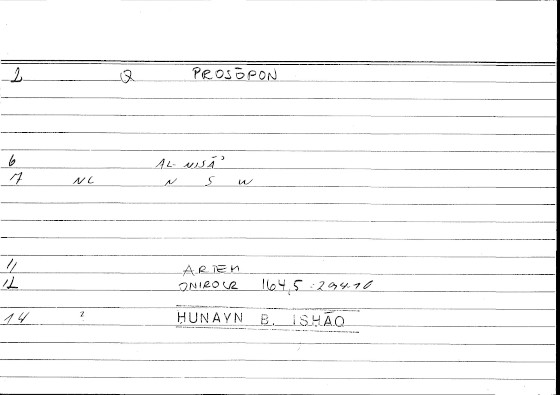 2 Q PROSŌPON
6 AL-NISĀʾ
7 NL N S W
11 ARTEM
12 ONIROCR 164,5 : 294.10
14 2 HUNAYN B. ISHĀQ